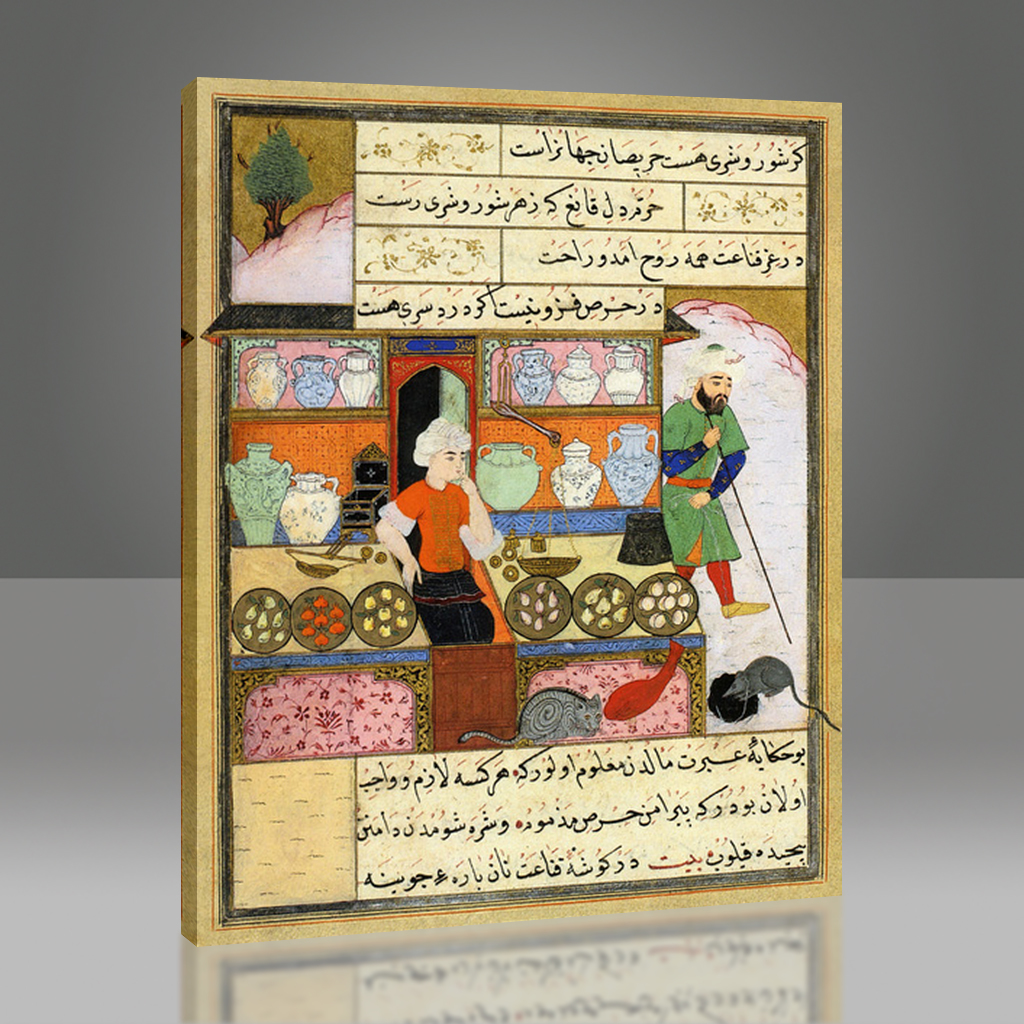 کر شور و شری هست حریصان جهانراست
خرم دل قانع که زهر شور و شری رست
در عز قناعت همه روح آمد و راحت
در حرص فزو نیست اگر درد سری هست
بو حکایهٔ عبرت مالدن معلوم اولور که هر کسه لازم و واجب
اولان بودر که پیرامن حرص مذمومه و شره شومدن دامنن
پیچیده قیلوب بیت در کوشهٔ قناعت نان پاره جوینه